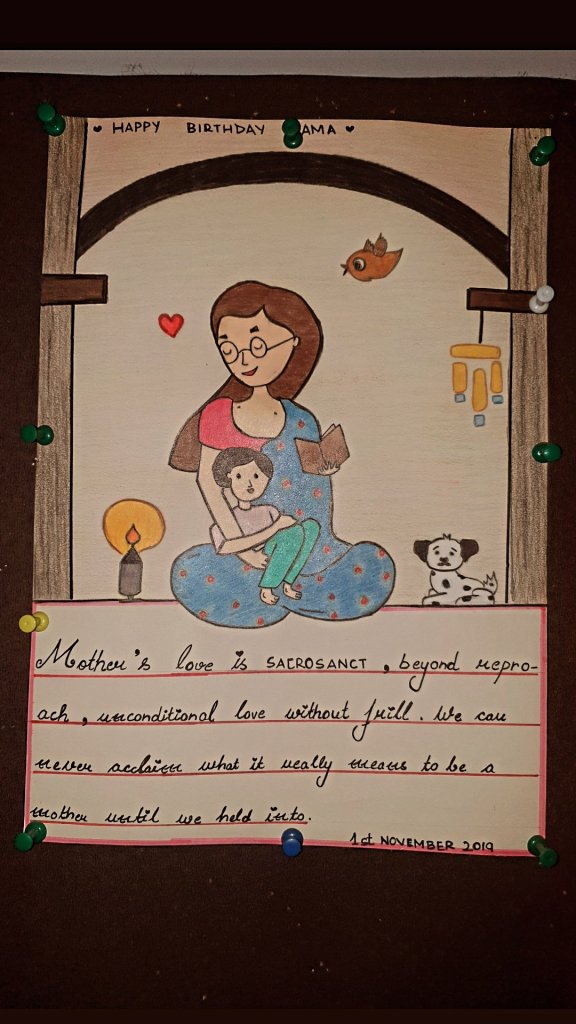 ♥ HAPPY BIRTHDAY AMA ♥
Mother's love is SACROSANCT , beyond repro-
ach , unconditional love without frill . We can
never acclaim what it really means to be a
mother until we held into.
1st NOVEMBER 2019